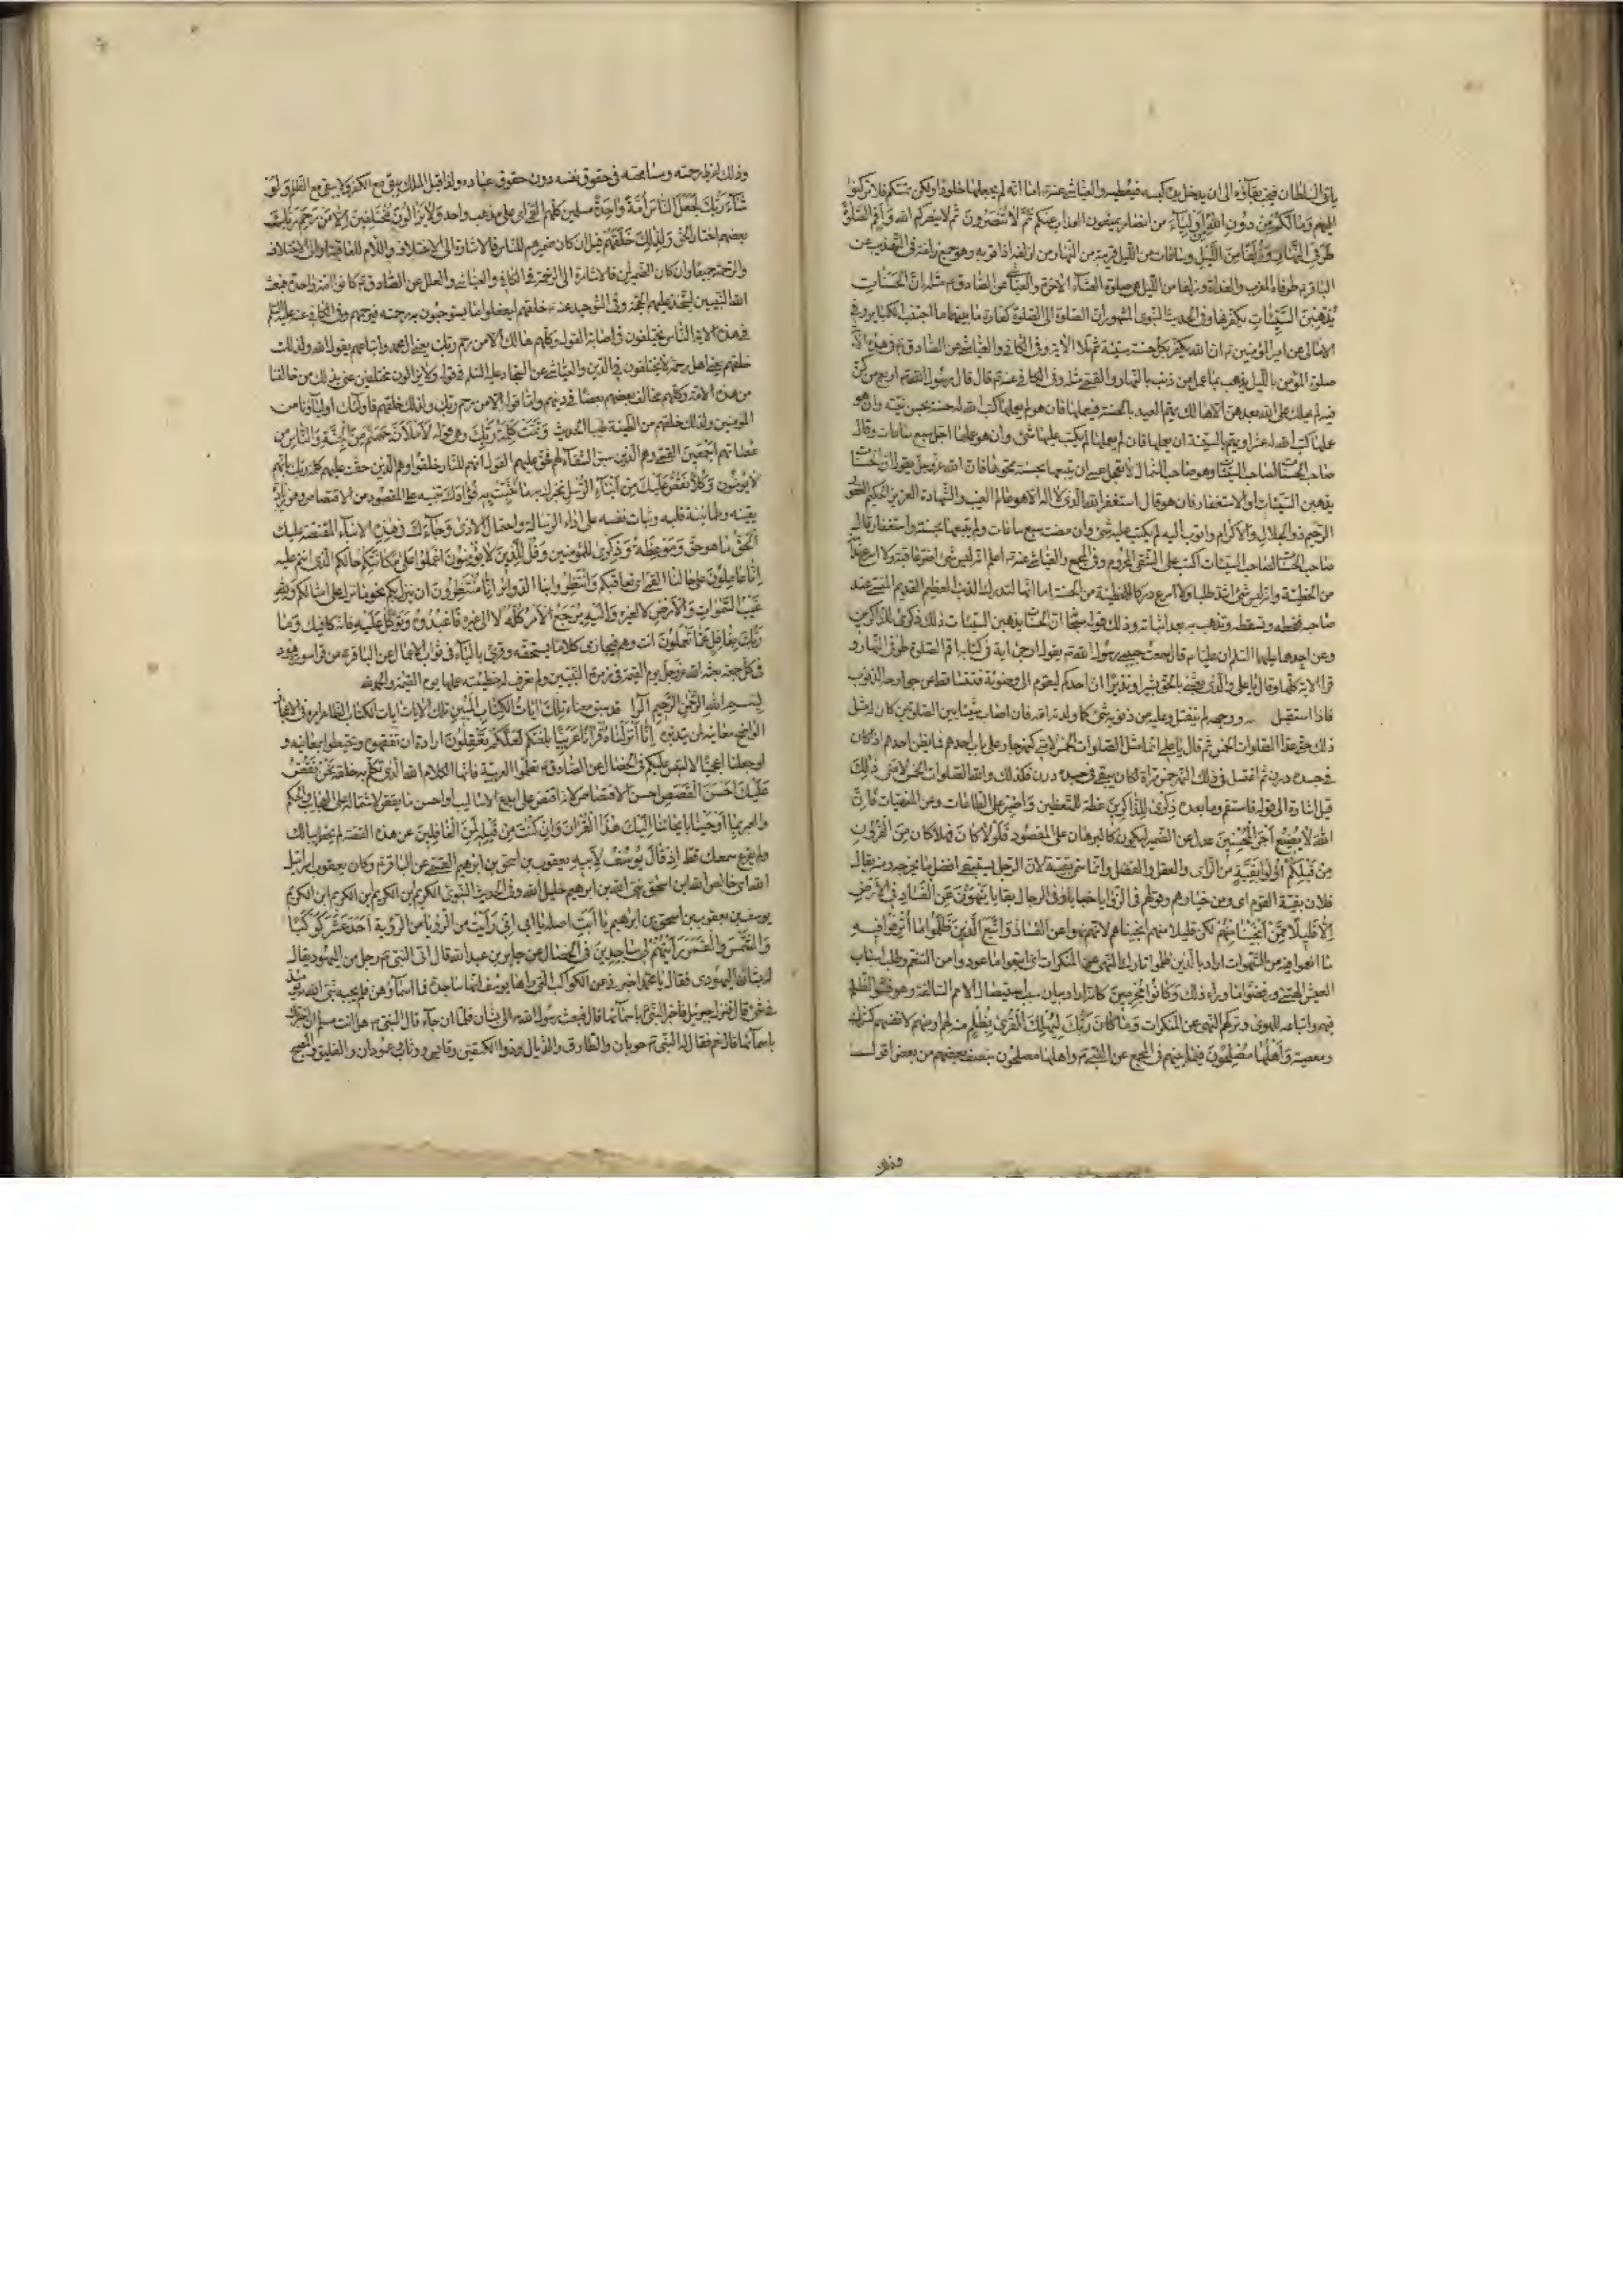 يأتي السلطان فيحب بقاءه الى ان يدخل يده كيسه فيعطيه والعياشي عنه اما انه لم يجعلها خلودا ولكن تمسكم فلا تركنوا
اليهم وَمَا لَكُمْ مِنْ دُونِ اللهِ مِنْ أَوْلِيَاءَ من انصار يمنعون العذاب عنكم ثُمَّ لَا تُنْصَرُونَ ثم لا ينصركم الله وَأَقِمِ الصَّلٰوةَ
طَرَفَيِ النَّهَارِ وَزُلَفًا مِنَ اللَّيْلِ وساعات من الليل قريبة من النهار من ازلفه اذا قربه وهو جمع زلفة في التهذيب عن
الباقر طرفاه المغرب والغداة وزلفا من الليل هي صلوة العشاء الاخرة والعياشي عن الصادق مثله إِنَّ الْحَسَنَاتِ
يُذْهِبْنَ السَّيِّئَاتِ يكفرنها وفي الحديث النبوي المشهور ان الصلوة الى الصلوة كفارة ما بينهما ما اجتنب الكباير وفي
الامالي عن امير المؤمنين ان الله يكفر بكل حسنة سيئة ثم تلا الاية وفي الكافي والعياشي عن الصادق في هذه الاية
صلوة المؤمن بالليل يذهب بما عمل من ذنب بالنهار والقمي مثله وفي الكافي عنه قال قال رسول الله اربع من كن
فيه لم يهلك على الله بعدهن الا هالك يهم العبد بالحسنة فيعملها فان هو لم يعملها كتب الله له حسنة بحسن نيته وان هو
عملها كتب الله له عشرا ويهم بالسيئة ان يعملها فان لم يعملها لم يكتب عليه شئ وان هو عملها اجل سبع ساعات وقال
صاحب الحسنات لصاحب السيئات وهو صاحب الشمال لا تعجل عسى ان يتبعها بحسنة تمحوها فان الله عز وجل يقول ان الحسنات
يذهبن السيئات او الاستغفار فان هو قال استغفر الله الذي لا اله الا هو عالم الغيب والشهادة العزيز الحكيم الغفور
الرحيم ذو الجلال والاكرام واتوب اليه لم يكتب عليه شئ وان مضت سبع ساعات ولم يتبعها بحسنة واستغفار قال
صاحب الحسنات لصاحب السيئات اكتب على الشقي المحروم وفي المجمع والعياشي عنه اعلم انه ليس شئ اضر عاقبة ولا اسرع ندامة
من الخطيئة وانه ليس شئ اشد طلبا ولا اسرع دركا للخطيئة من الحسنة اما انها لتدرك الذنب العظيم القديم المنسي عند
صاحبه فتحطه وتسقطه وتذهب به بعد اثباته وذلك قوله سبحانه ان الحسنات يذهبن السيئات ذٰلِكَ ذِكْرٰى لِلذَّاكِرِينَ
وعن احدهما عليهما السلام ان عليا قال سمعت حبيبي رسول الله يقول ارجى اية في كتاب الله اقم الصلوة طرفي النهار و
قرأ الاية كلها وقال يا علي والذي بعثني بالحق بشيرا ونذيرا ان احدكم ليقوم الى وضوئه فتتساقط عن جوارحه الذنوب
فاذا استقبل بوجهه لم ينفتل وعليه من ذنوبه شئ كما ولدته امه فان اصاب شيئا بين الصلوتين كان له مثل
ذلك حتى عد الصلوات الخمس ثم قال يا علي انما مثل الصلوات الخمس لامتي كنهر جار على باب احدهم فما يظن احدهم اذا كان
في جسده درن ثم اغتسل في ذلك النهر خمس مرات اكان يبقى في جسده درن فكذلك والله الصلوات الخمس لامتي ذٰلِكَ
قيل اشارة الى قوله فاستقم وما بعده ذِكْرٰى لِلذَّاكِرِينَ عظة للمتعظين وَاصْبِرْ على الطاعات وعن المنهيات فَإِنَّ
اللهَ لَا يُضِيعُ أَجْرَ الْمُحْسِنِينَ عدل عن الضمير ليكون كالبرهان على المقصود فَلَوْلَا كَانَ فهلا كان مِنَ الْقُرُونِ
مِنْ قَبْلِكُمْ أُولُوا بَقِيَّةٍ من الراي والعقل والفضل وانما سمي بقية لان الرجل يستبقي افضل ما يخرجه ومنه يقال
فلان بقية القوم اي من خيارهم وقولهم في الزوايا خبايا وفي الرجال بقايا يَنْهَوْنَ عَنِ الْفَسَادِ فِي الْأَرْضِ
إِلَّا قَلِيلًا مِمَّنْ أَنْجَيْنَا مِنْهُمْ لكن قليلا منهم انجيناهم لانهم نهوا عن الفساد وَاتَّبَعَ الَّذِينَ ظَلَمُوا مَا أُتْرِفُوا فِيهِ
ما انعموا فيه من الشهوات اراد بالذين ظلموا تاركي النهي عن المنكرات اي اتبعوا ما عودوا من التنعم وطلب اسباب
العيش الهنئ ورفضوا ما وراء ذلك وَكَانُوا مُجْرِمِينَ كافرين اراد بيان سبب استيصال الامم السالفة وهو فشو الظلم
فيهم واتباعهم للهوى وتركهم النهي عن المنكرات وَمَا كَانَ رَبُّكَ لِيُهْلِكَ الْقُرٰى بِظُلْمٍ منه لهم او منهم لانفسهم كشرك
ومعصية وَأَهْلُهَا مُصْلِحُونَ فيما بينهم في المجمع عن النبي واهلها مصلحون ينصف بعضهم من بعض اقول
وذلك
وذلك لفرط رحمته ومسامحته في حقوق نفسه دون حقوق عباده ولذا قيل الملك يبقى مع الكفر ولا يبقى مع الظلم وَلَوْ
شَاءَ رَبُّكَ لَجَعَلَ النَّاسَ أُمَّةً وَاحِدَةً مسلمين كلهم القمي اي على مذهب واحد وَلَا يَزَالُونَ مُخْتَلِفِينَ إِلَّا مَنْ رَحِمَ رَبُّكَ
بعضهم اختار الحق وَلِذٰلِكَ خَلَقَهُمْ قيل ان كان ضميرهم للناس فالاشارة الى الاختلاف واللام للعاقبة او الى الاختلاف
والرحمة جميعا وان كان الضمير لمن فالاشارة الى الرحمة في الكافي والعياشي والعلل عن الصادق كانوا امة واحدة فبعث
الله النبيين ليتخذ عليهم الحجة وفي التوحيد عنه خلقهم ليفعلوا ما يستوجبون به رحمته فيرحمهم وفي الكافي عنه عليه السلام
في هذه الاية الناس يختلفون في اصابة القول وكلهم هالك الا من رحم ربك يعني ال محمد واتباعهم يقول الله ولذلك
خلقهم يعني اهل رحمة لا يختلفون في الدين والعياشي عن السجاد عليه السلام في قوله ولا يزالون مختلفين عنى بذلك من خالفنا
من هذه الامة وكلهم مخالف بعضهم بعضا في دينهم واما قوله الا من رحم ربك ولذلك خلقهم فاولئك اولياؤنا من
المؤمنين ولذلك خلقهم من الطينة طيبا الحديث وَتَمَّتْ كَلِمَةُ رَبِّكَ وهي قوله لَأَمْلَأَنَّ جَهَنَّمَ مِنَ الْجِنَّةِ وَالنَّاسِ من
عصاتهم أَجْمَعِينَ القمي وهم الذين سبق الشقاء لهم فحق عليهم القول انهم للنار خلقوا وهم الذين حقت عليهم كلمة ربك انهم
لا يؤمنون وَكُلًّا نَقُصُّ عَلَيْكَ مِنْ أَنْبَاءِ الرُّسُلِ نخبرك به مَا نُثَبِّتُ بِهِ فُؤَادَكَ تنبيه على المقصود من الاقتصاص وهو زيادة
يقينه وطمانينة قلبه وثبات نفسه على اداء الرسالة واحتمال الاذى وَجَاءَكَ فِي هٰذِهِ الانباء المقتصة عليك
الْحَقُّ ما هو حق وَمَوْعِظَةٌ وَذِكْرٰى لِلْمُؤْمِنِينَ وَقُلْ لِلَّذِينَ لَا يُؤْمِنُونَ اعْمَلُوا عَلٰى مَكَانَتِكُمْ حالكم الذي انتم عليه
إِنَّا عَامِلُونَ على حالنا القمي اي نعاقبكم وَانْتَظِرُوا بنا الدوائر إِنَّا مُنْتَظِرُونَ ان ينزل بكم نحو ما نزل على امثالكم وَلِلّٰهِ
غَيْبُ السَّمٰوَاتِ وَالْأَرْضِ لا لغيره وَإِلَيْهِ يُرْجَعُ الْأَمْرُ كُلُّهُ لا الى غيره فَاعْبُدْهُ وَتَوَكَّلْ عَلَيْهِ فانه كافيك وَمَا
رَبُّكَ بِغَافِلٍ عَمَّا تَعْمَلُونَ انت وهم فيجازي كلا ما يستحقه وقرئ بالياء في ثواب الاعمال عن الباقر من قرأ سورة هود
في كل جمعة بعثه الله عز وجل يوم القيمة في زمرة النبيين ولم تعرف له خطيئة عملها يوم القيمة والحمد لله
بسم الله الرحمن الرحيم الٓرٰ قد سبق معناه تِلْكَ اٰيَاتُ الْكِتَابِ الْمُبِينِ تلك الايات ايات الكتاب الظاهر امره في الاعجاز
الواضح معانيه لمن يتدبره إِنَّا أَنْزَلْنَاهُ قُرْاٰنًا عَرَبِيًّا بلغتكم لَعَلَّكُمْ تَعْقِلُونَ ارادة ان تفقهوه وتحيطوا بمعانيه و
لو جعلناه اعجميا لالتبس عليكم في الخصال عن الصادق تعلموا العربية فانها كلام الله الذي تكلم به خلقه نَحْنُ نَقُصُّ
عَلَيْكَ أَحْسَنَ الْقَصَصِ احسن الاقتصاص لانه اقتص على ابدع الاساليب او احسن ما يقص لاشتماله على العجايب والحكم
والعبر بِمَا أَوْحَيْنَا بايحائنا إِلَيْكَ هٰذَا الْقُرْاٰنَ وَإِنْ كُنْتَ مِنْ قَبْلِهِ لَمِنَ الْغَافِلِينَ عن هذه القصة لم يخطر ببالك
ولم يقرع سمعك قط إِذْ قَالَ يُوسُفُ لِأَبِيهِ يعقوب بن اسحق بن ابرهيم القمي عن الباقر وكان يعقوب اسرائيل
الله اي خالص الله ابن اسحق نبي الله بن ابرهيم خليل الله وفي الحديث النبوي الكريم بن الكريم بن الكريم ابن الكريم
يوسف بن يعقوب بن اسحق بن ابرهيم يَا أَبَتِ اصله يا ابي إِنِّي رَأَيْتُ من الرؤيا من الرؤية أَحَدَ عَشَرَ كَوْكَبًا
وَالشَّمْسَ وَالْقَمَرَ رَأَيْتُهُمْ لِي سَاجِدِينَ في الخصال عن جابر بن عبد الله قال اتى النبي رجل من اليهود يقال
له بستان اليهودي فقال يا محمد اخبرني عن الكواكب التي راها يوسف انها ساجدة فما اسماؤهن فلم يجبه نبي الله يومئذ
في شئ قال فنزل جبرئيل فاخبر النبي باسمائها قال فبعث رسول الله الى بستان فلما ان جاءه قال النبي هل انت مسلم ان اخبرتك
باسمائها قال نعم فقال له النبي حوبان والطارق والذيال وذوالكتفين وقابس ووثاب وعمودان والفليق والمصبح